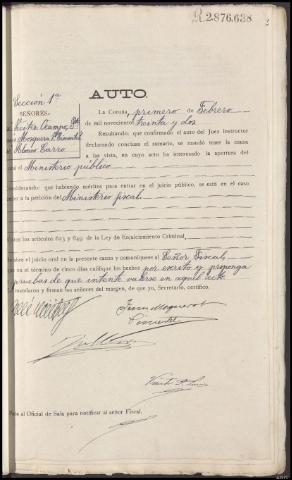 R.2.876.638
2
Sección 1ª
SEÑORES:
AUTO
La Coruña, primero de Febrero
de mil novecientos treinta y dos
Resultando: que confirmado el auto del Juez Instructor
declarando concluso el sumario, se mandó traer la causa
a las vista, en cuyo acto ha interesado la apertura del
Ministerio público
Considerando: que habiendo méritos para entrar en el juicio público, se está en el caso
a la petición del Ministerio fiscal
Vistos los artículos 633 y 649 de la Ley de Enjuiciamiento Criminal,
el juicio oral en la presente causa y comuníquese al Señor Fiscal
en el término de cinco días califique los hechos por escrito y proponga
pruebas de que intente valerse en aquel acto
mandaron y firman los señores del margen, de que yo, Secretario, certifico.
al Oficial de Sala para notificar al señor Fiscal.